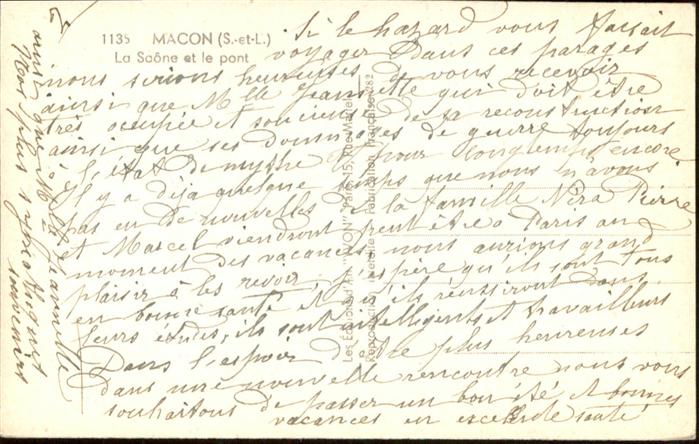 1135 MACON (S.-et-L.)
La Saône et le pont
Si le hazard vous faisait
voyager dans ces parages
nous serions heureuses de vous recevoir
ainsi que Mlle Jeannette qui doit être
très occupée et soucieuse de sa reconstruction
ainsi que ses dommages de guerre toujours
à l'état de mythe et pour longtemps encore
Il y a déja quelque temps que nous n'avons
pas eu de nouvelles de la famille Pierre
et Marcel viendront peut être à Paris au
moment des vacances, nous aurions grand
plaisir à les revoir, j'espère qu'ils sont tous
en bonne santé et qu'ils réussiront dans
leurs études, ils sont intelligents et travailleurs
Dans l'espoir d'être plus heureuses
dans une nouvelle rencontre nous vous
souhaitons de passer un bon été et bonnes
vacances en excellente santé
Nos plus
souvenirs
ainsi qu'à Mlle Jeannette
Les Editions d'Art "YVON", Paris, 15, Rue Martel
Reproduction interdite - Fabrication Française 282